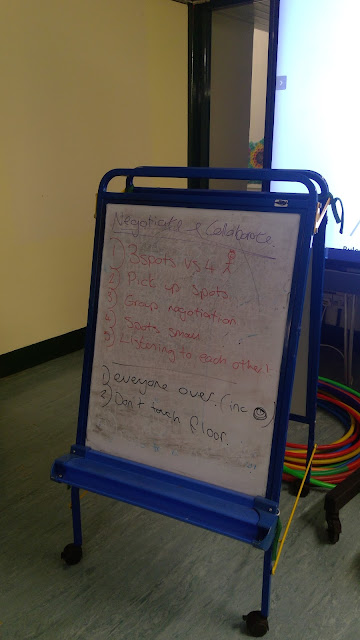 Negotiate & Collaborate
1) 3 spots vs 4
2) Pick up spots
3) Group negotiation
4) Spots small
5) Listening to each other!
1) everyone over. (inc ☺)
2) Don't touch floor.